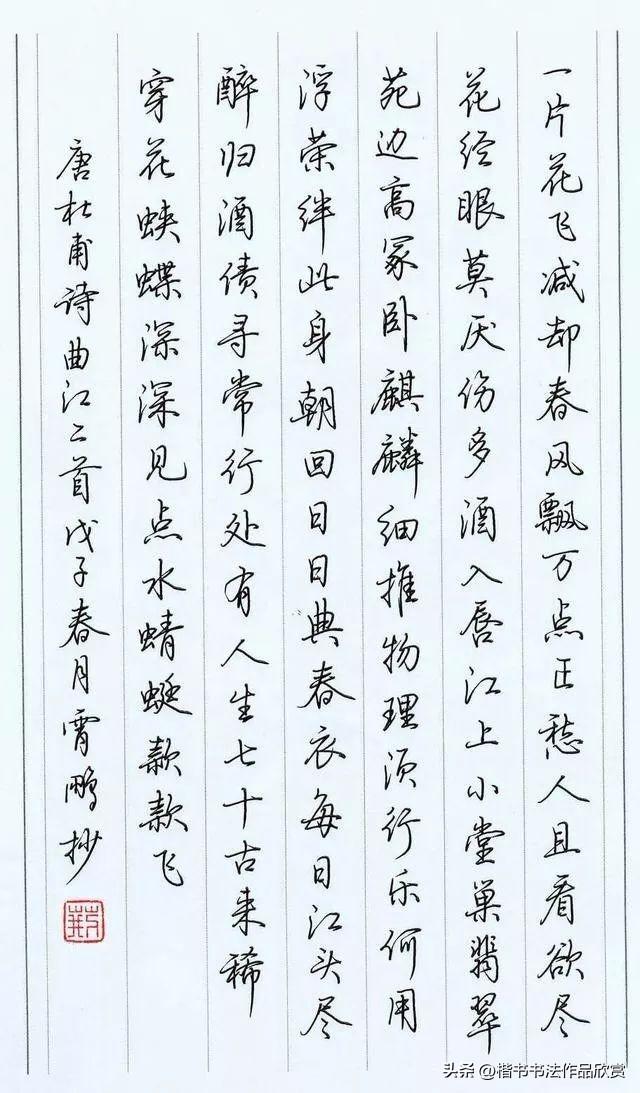 一片花飞减却春风飘万点正愁人且看欲尽
花经眼莫厌伤多酒入唇江上小堂巢翡翠
苑边高冢卧麒麟细推物理须行乐何用
浮荣绊此身朝回日日典春衣每日江头尽
醉归酒债寻常行处有人生七十古来稀
穿花蛱蝶深深见点水蜻蜓款款飞
唐杜甫诗曲江二首戊子春月霄鹏抄
头条 @楷书书法作品欣赏